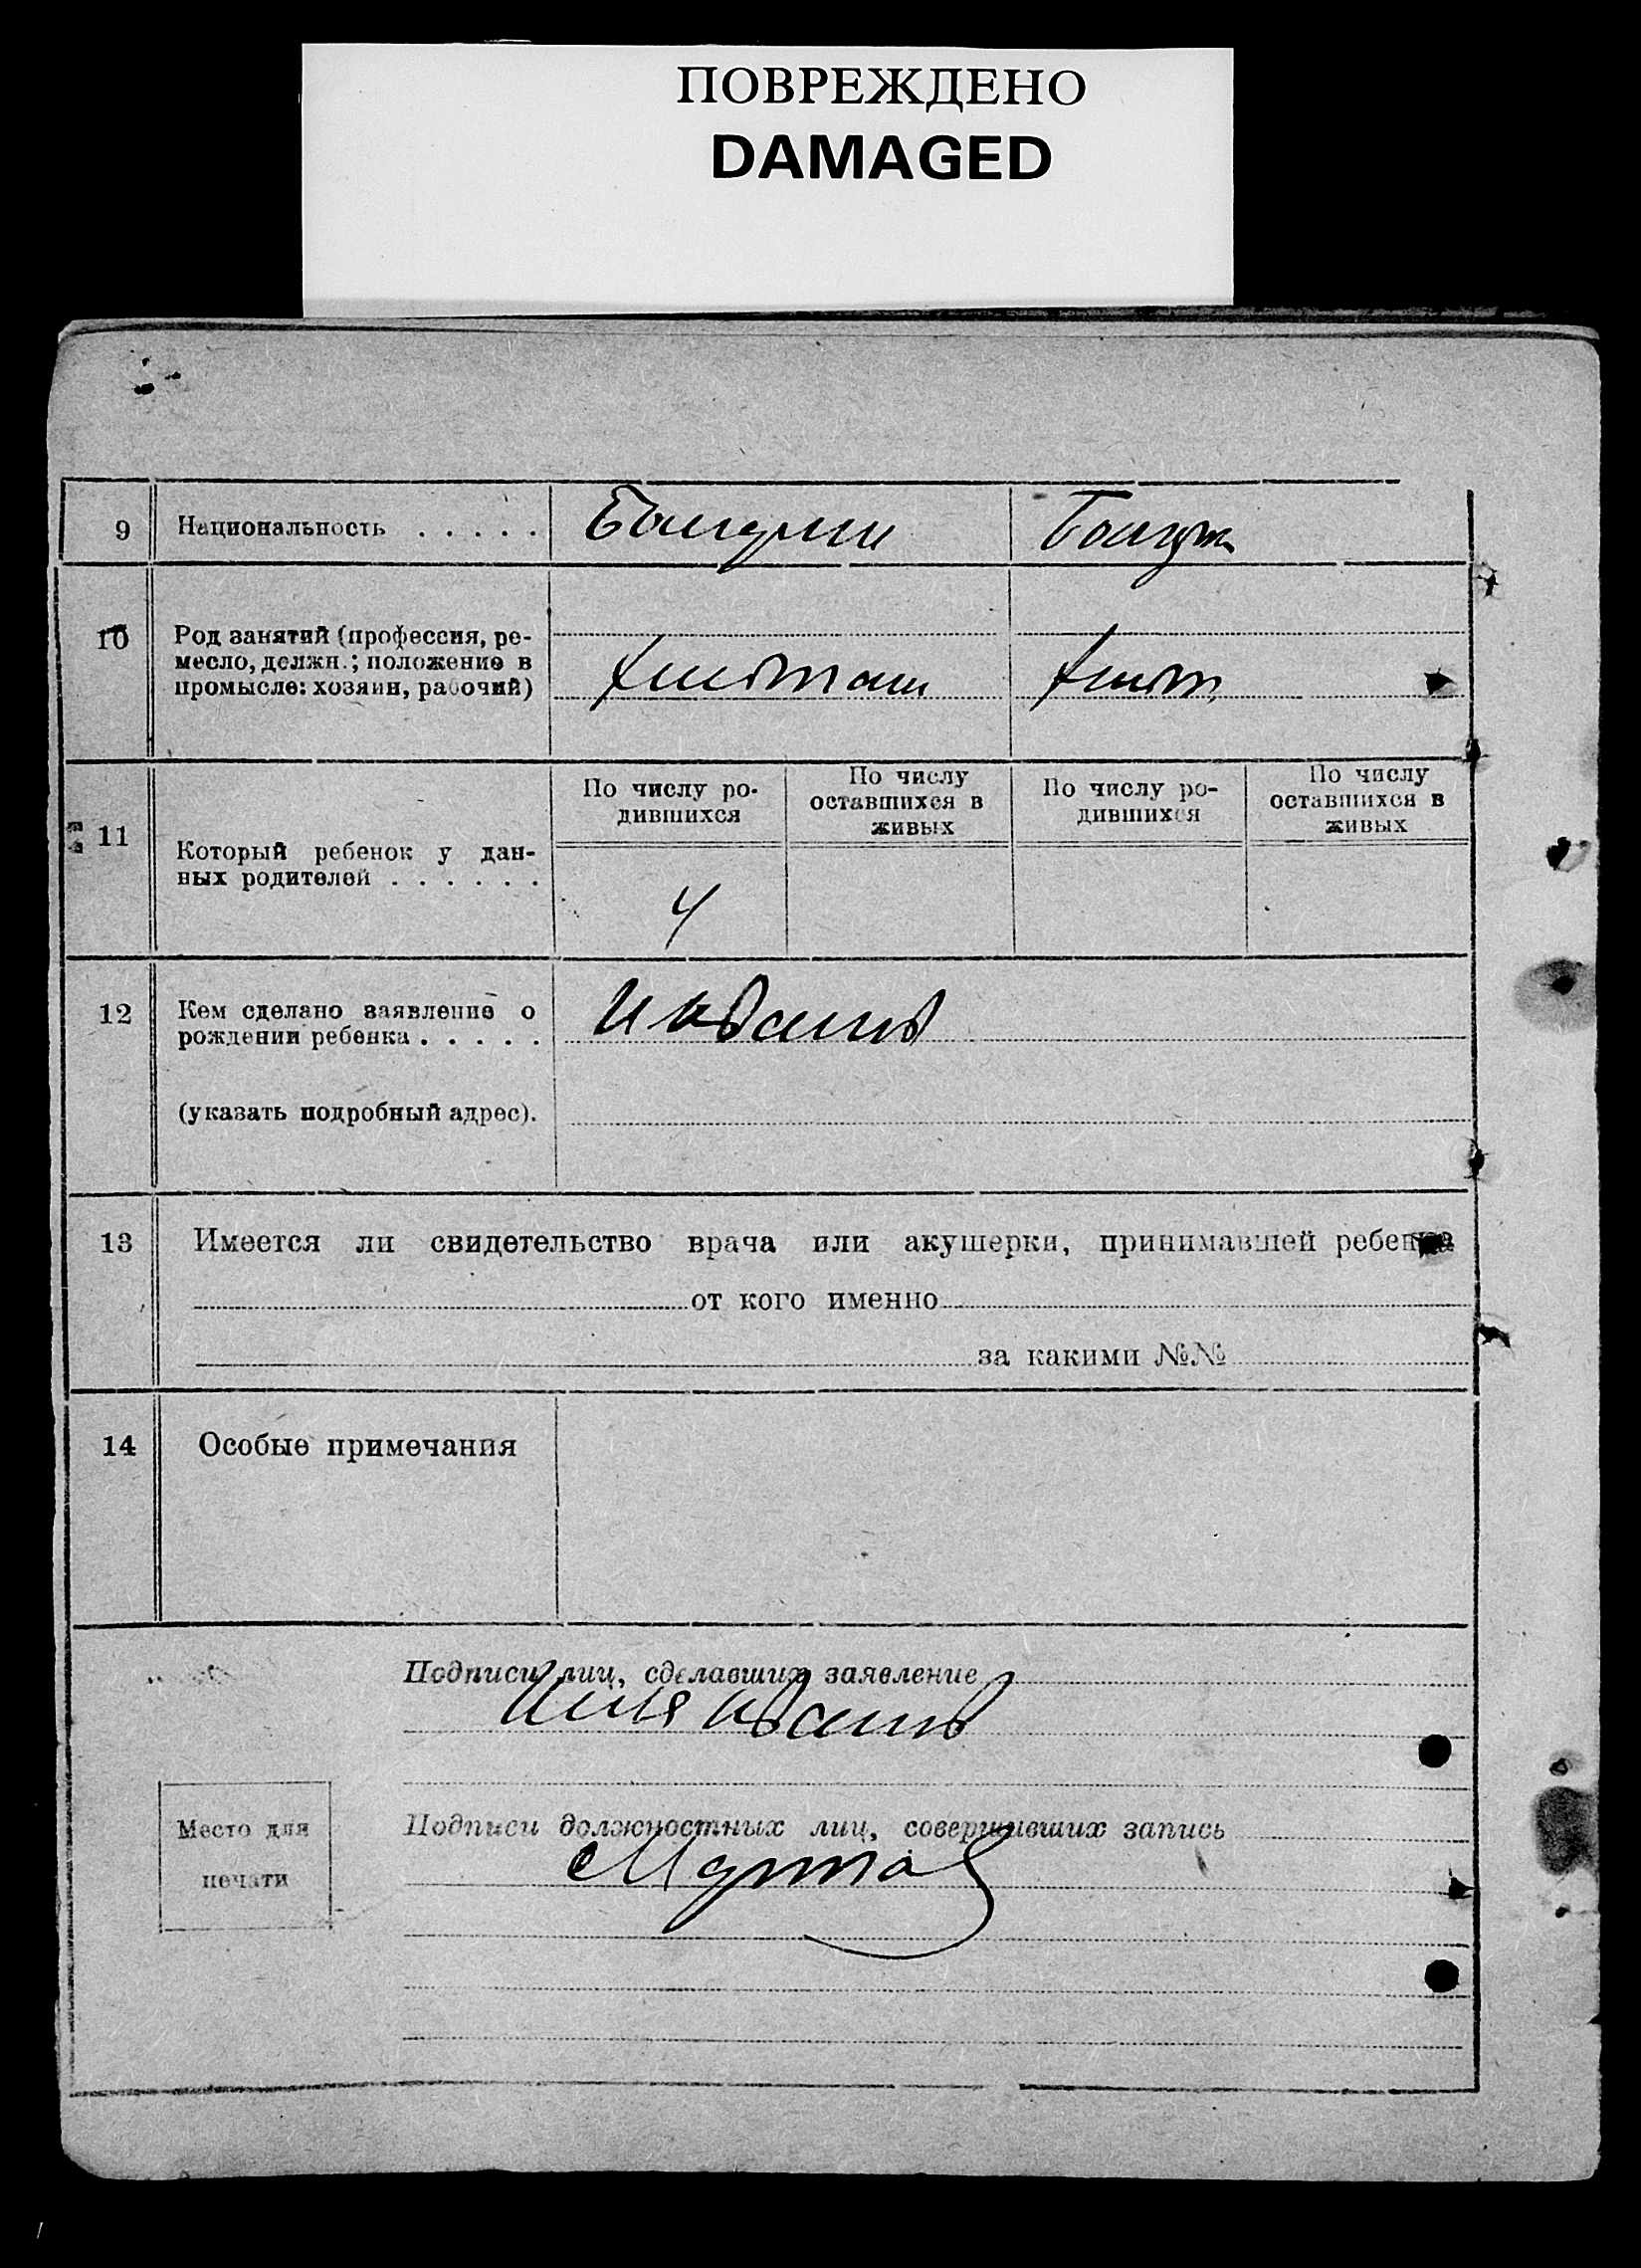 ПОВРЕЖДЕНО
DAMAGED
9 Национальность . . . . .
10 Род занятий (профессия, ре-
месло, должн.; положение в
промысле: хозяин, рабочий)
По числу ро-
дившихся
По числу
оставшихся в
живых
По числу ро-
дившихся
По числу
оставшихся в
живых
11 Который ребенок у дан-
ных родителей . . . . . .
4
12 Кем сделано заявление о
рождении ребенка . . . . .
(указать подробный адрес).
13 Имеется ли свидетельство врача или акушерки, принимавшей ребенка
от кого именно
за какими №№
14 Особые примечания
Подписи лиц, сделавших заявление
Место для
печати
Подписи должностных лиц, совершивших запись